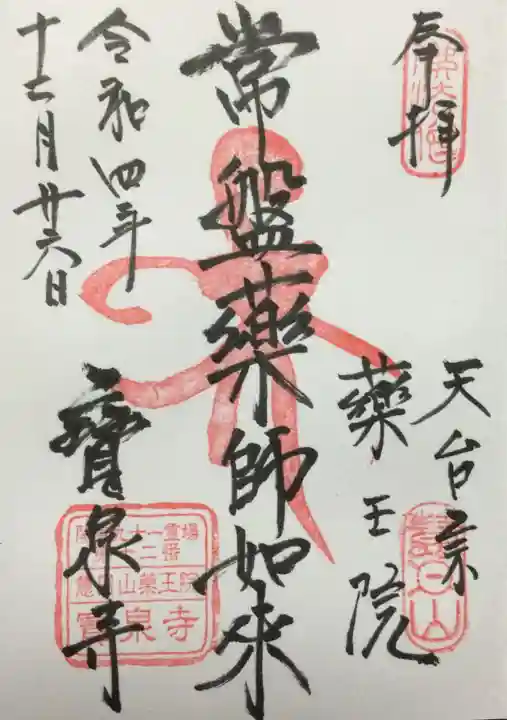 奉拝
天台宗
薬王院
常盤薬師如来
令和四年
十二月廿六日
寳泉寺
寳泉寺